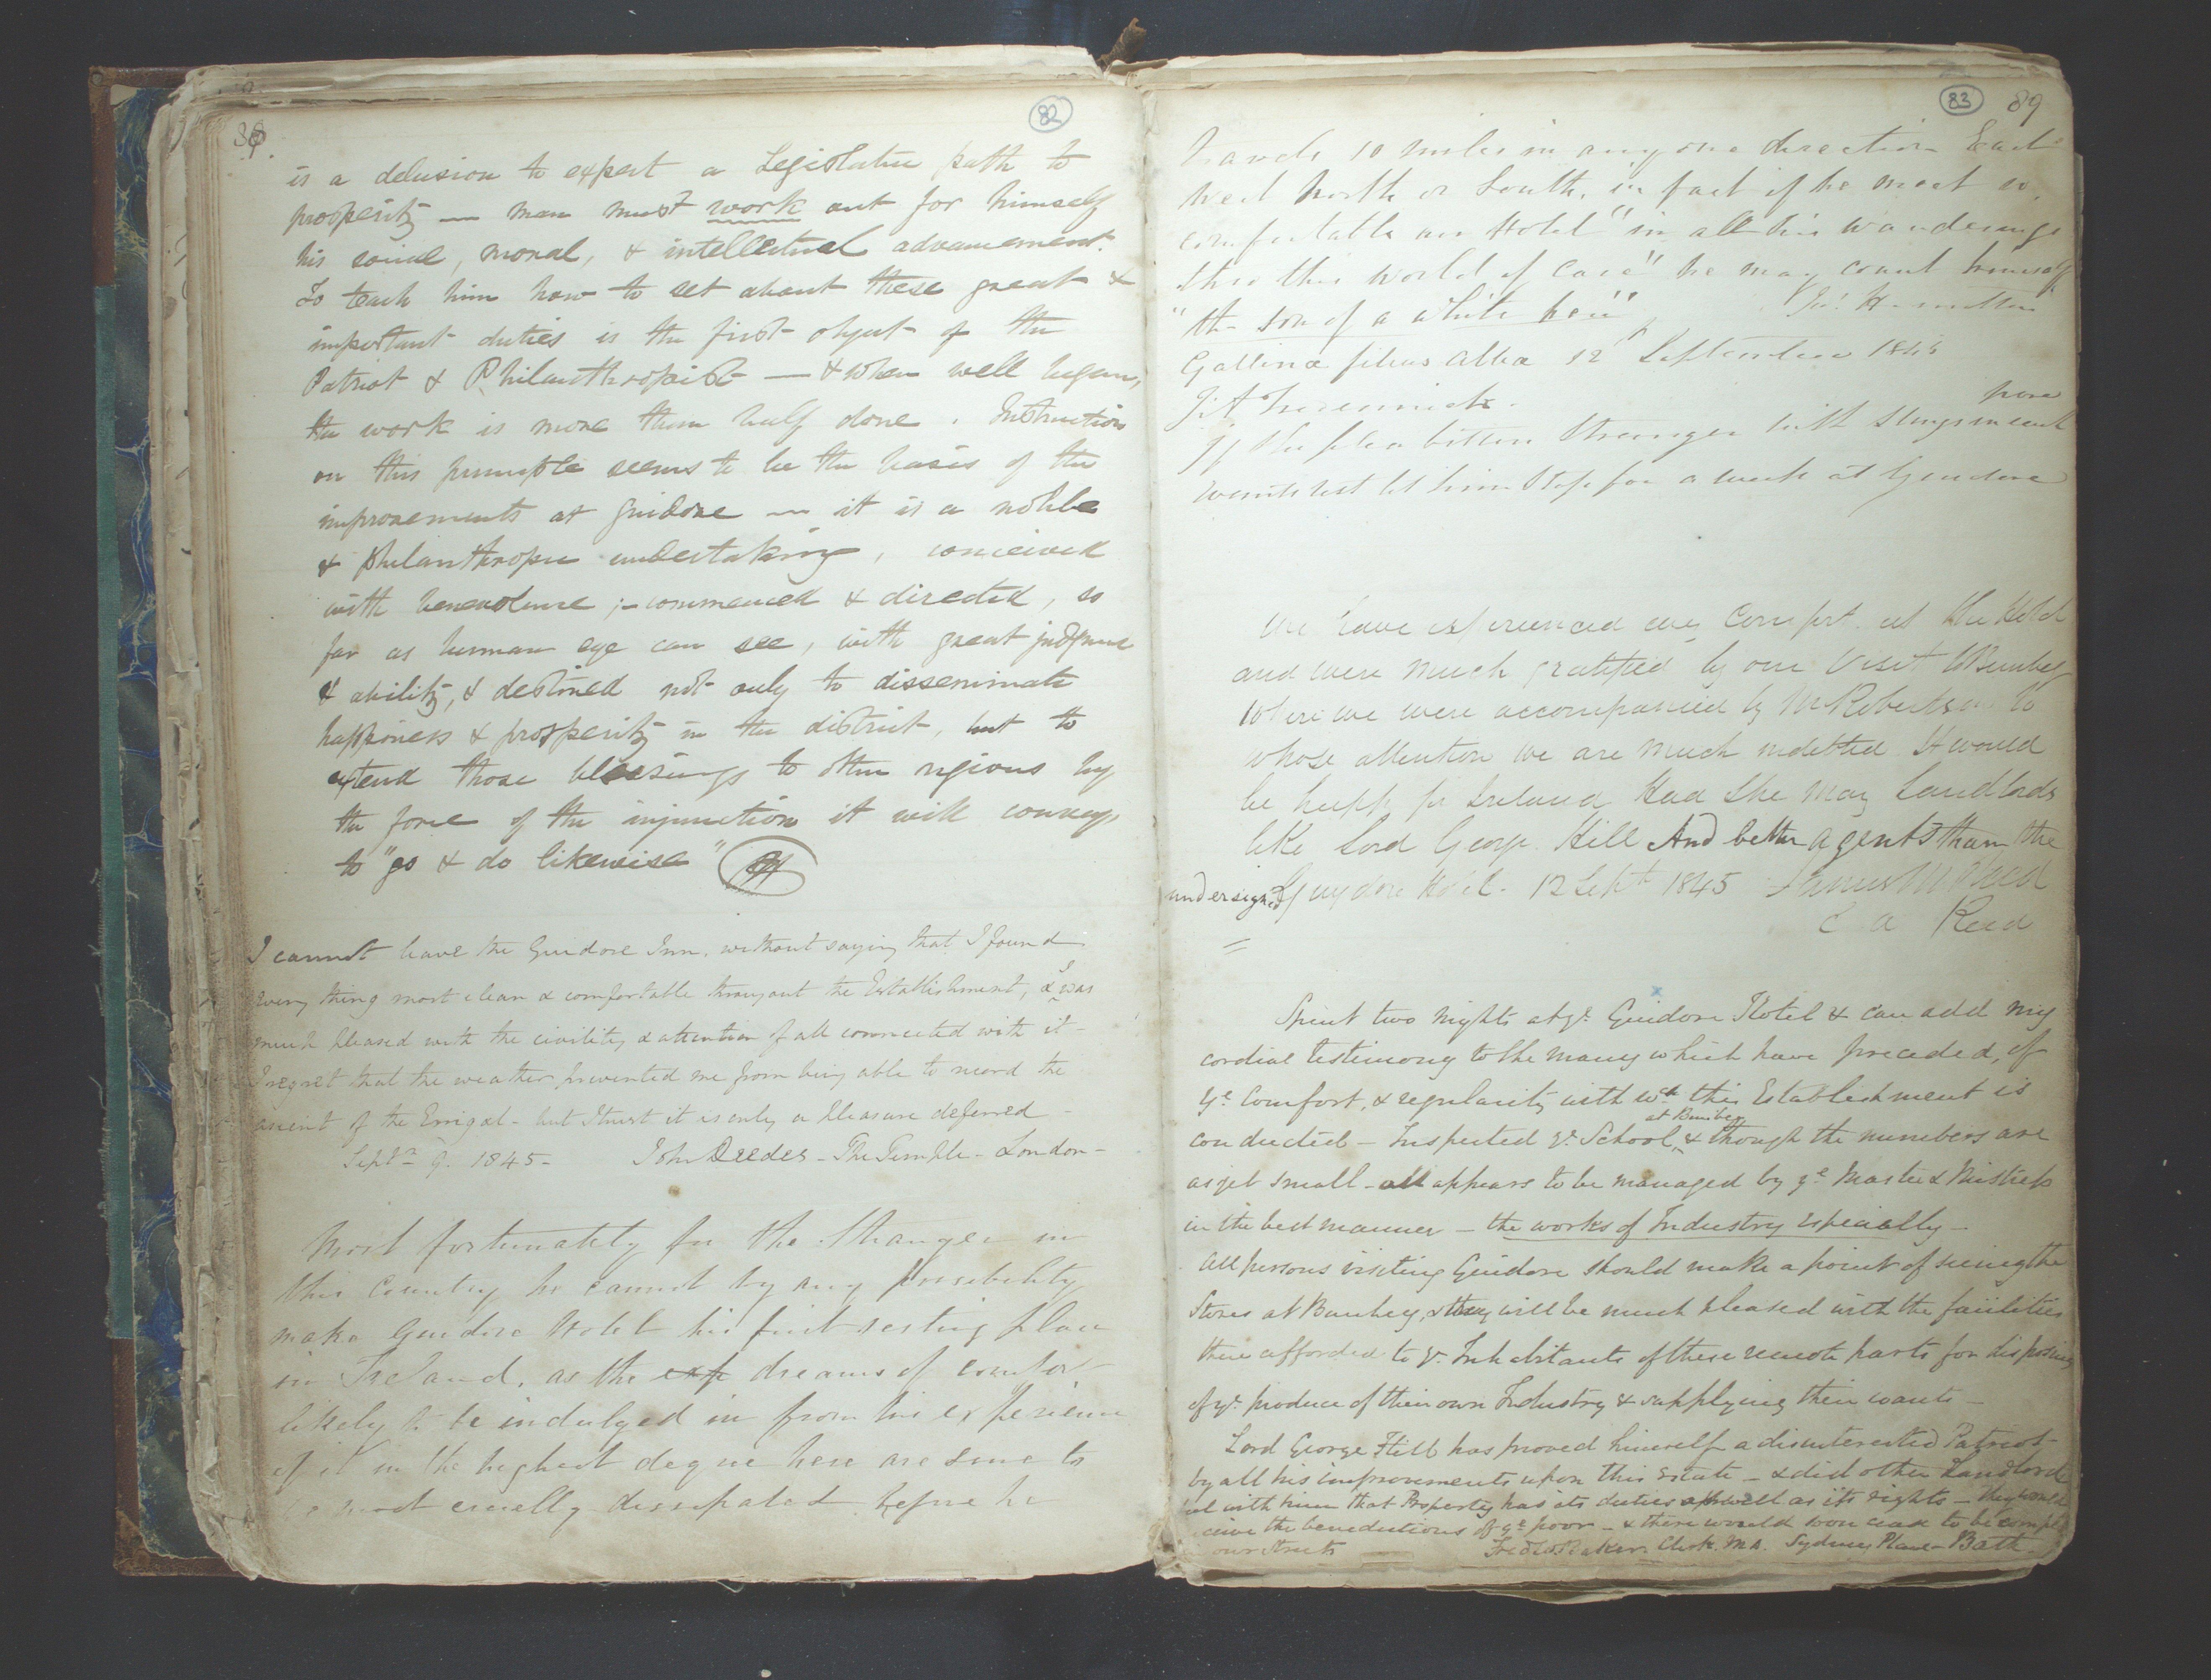 88
82
is a delusion to expect a Legislative path to
prosperity — man must work out for himself
his social, moral, & intellectual advancement.
To teach him how to set about these great &
important duties is the first object of the
Patriot & Philanthropist — & when well begun,
the work is more than half done. Instruction
on this principle seems to be the basis of the
improvements at Guidore — it is a noble
& philanthropic undertaking, conceived
with benevolence; — commenced & directed, so
far as human eye can see, with great judgment
& ability, & destined not only to disseminate
happiness & prosperity in the district, but to
extend those blessings to other regions by
the force of the injunction it will convey
to "go & do likewise"
I cannot leave the Guidore Inn, without saying that I found
every thing most clean & comfortable througout the Establishment, & I was
much pleased with the civility & attention of all connected with it —
I regret that the weather prevented me from being able to record the
ascent of the Errigal - but I trust it is only a pleasure deferred —
Septr. 9. 1845 — John Deedes — The Temple — London —
Most fortunately for the Stranger in
this Country he cannot by any possibility
make Guidore Hotel his first resting place
in Ireland, as the exp dreams of comfort
likely to be indulged in from his experience
of it in the highest degree here are sure to
be most cruelly dissipated before he
83 89
travels 10 miles in any one direction East
West North or South, in fact if he meet so
comfortable an Hotel "in all his wanderings
thro this world of care" he may count himself
"the son of a white hen"
Gallinæ filius albæ 12 September 1845
here
If the flea bitten Stranger with stung
wants rest let him stop for a week at Guidore
We have experienced every Comfort at the Hotel
and were much gratified by our Visit to Bunbeg
Where we were accompanied by Mr Robertson to
whose attention we are much indebted It would
be happy for Ireland Had She many Landlords
like Lord George Hill And better agents than the
undersigned Guydore Hotel. 12 Sept 1845 James
Reed
Spent two nights at ye. Guidore Hotel & can add my
cordial testimony to the many which have preceded, of
ye. Comfort, & regularity with wch. this Establishment is
at Bunbeg
conducted — Inspected ye. School, & though the numbers are
as yet small — all appears to be managed by ye. Master & Mistress
in the best manner — the works of Industry especially —
All persons visiting Guidore should make a point of seeing the
Stores at Bunbeg, & they will be much pleased with the facilities
there afforded to ye. Inhabitants of these remote parts for disposing
of ye. produce of their own Industry & supplying their wants —
Lord George Hill has proved himself a disinterested Patriot
by all his improvements upon this Estate — & did other Landlords
feel with him that Property has its duties as well as its rights — they would
receive the benedictions of ye. poor — & there would soon cease to be
our streets Baker. Clerk. M.A. Sydney Place — Bath —